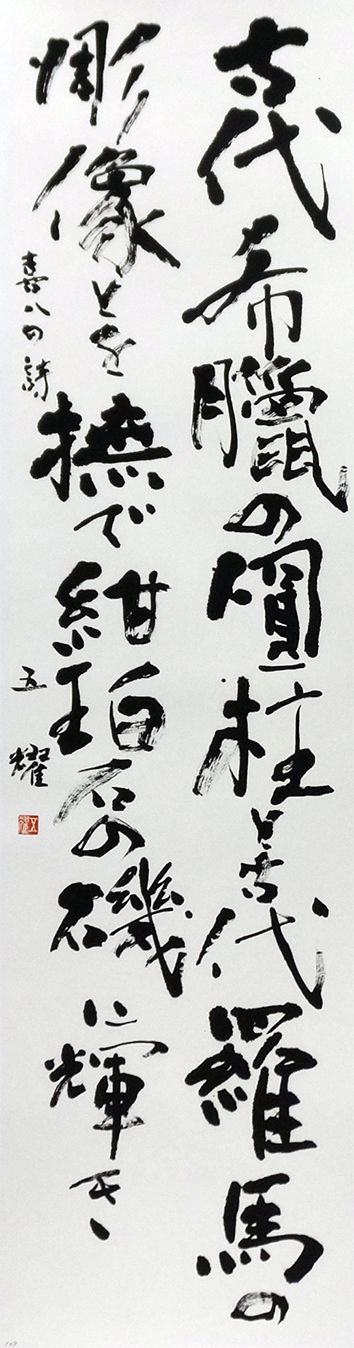 古代希臘の圓柱と古代羅馬の
彫像とを撫で紺碧の磯に輝き
喜八の詩
五耀